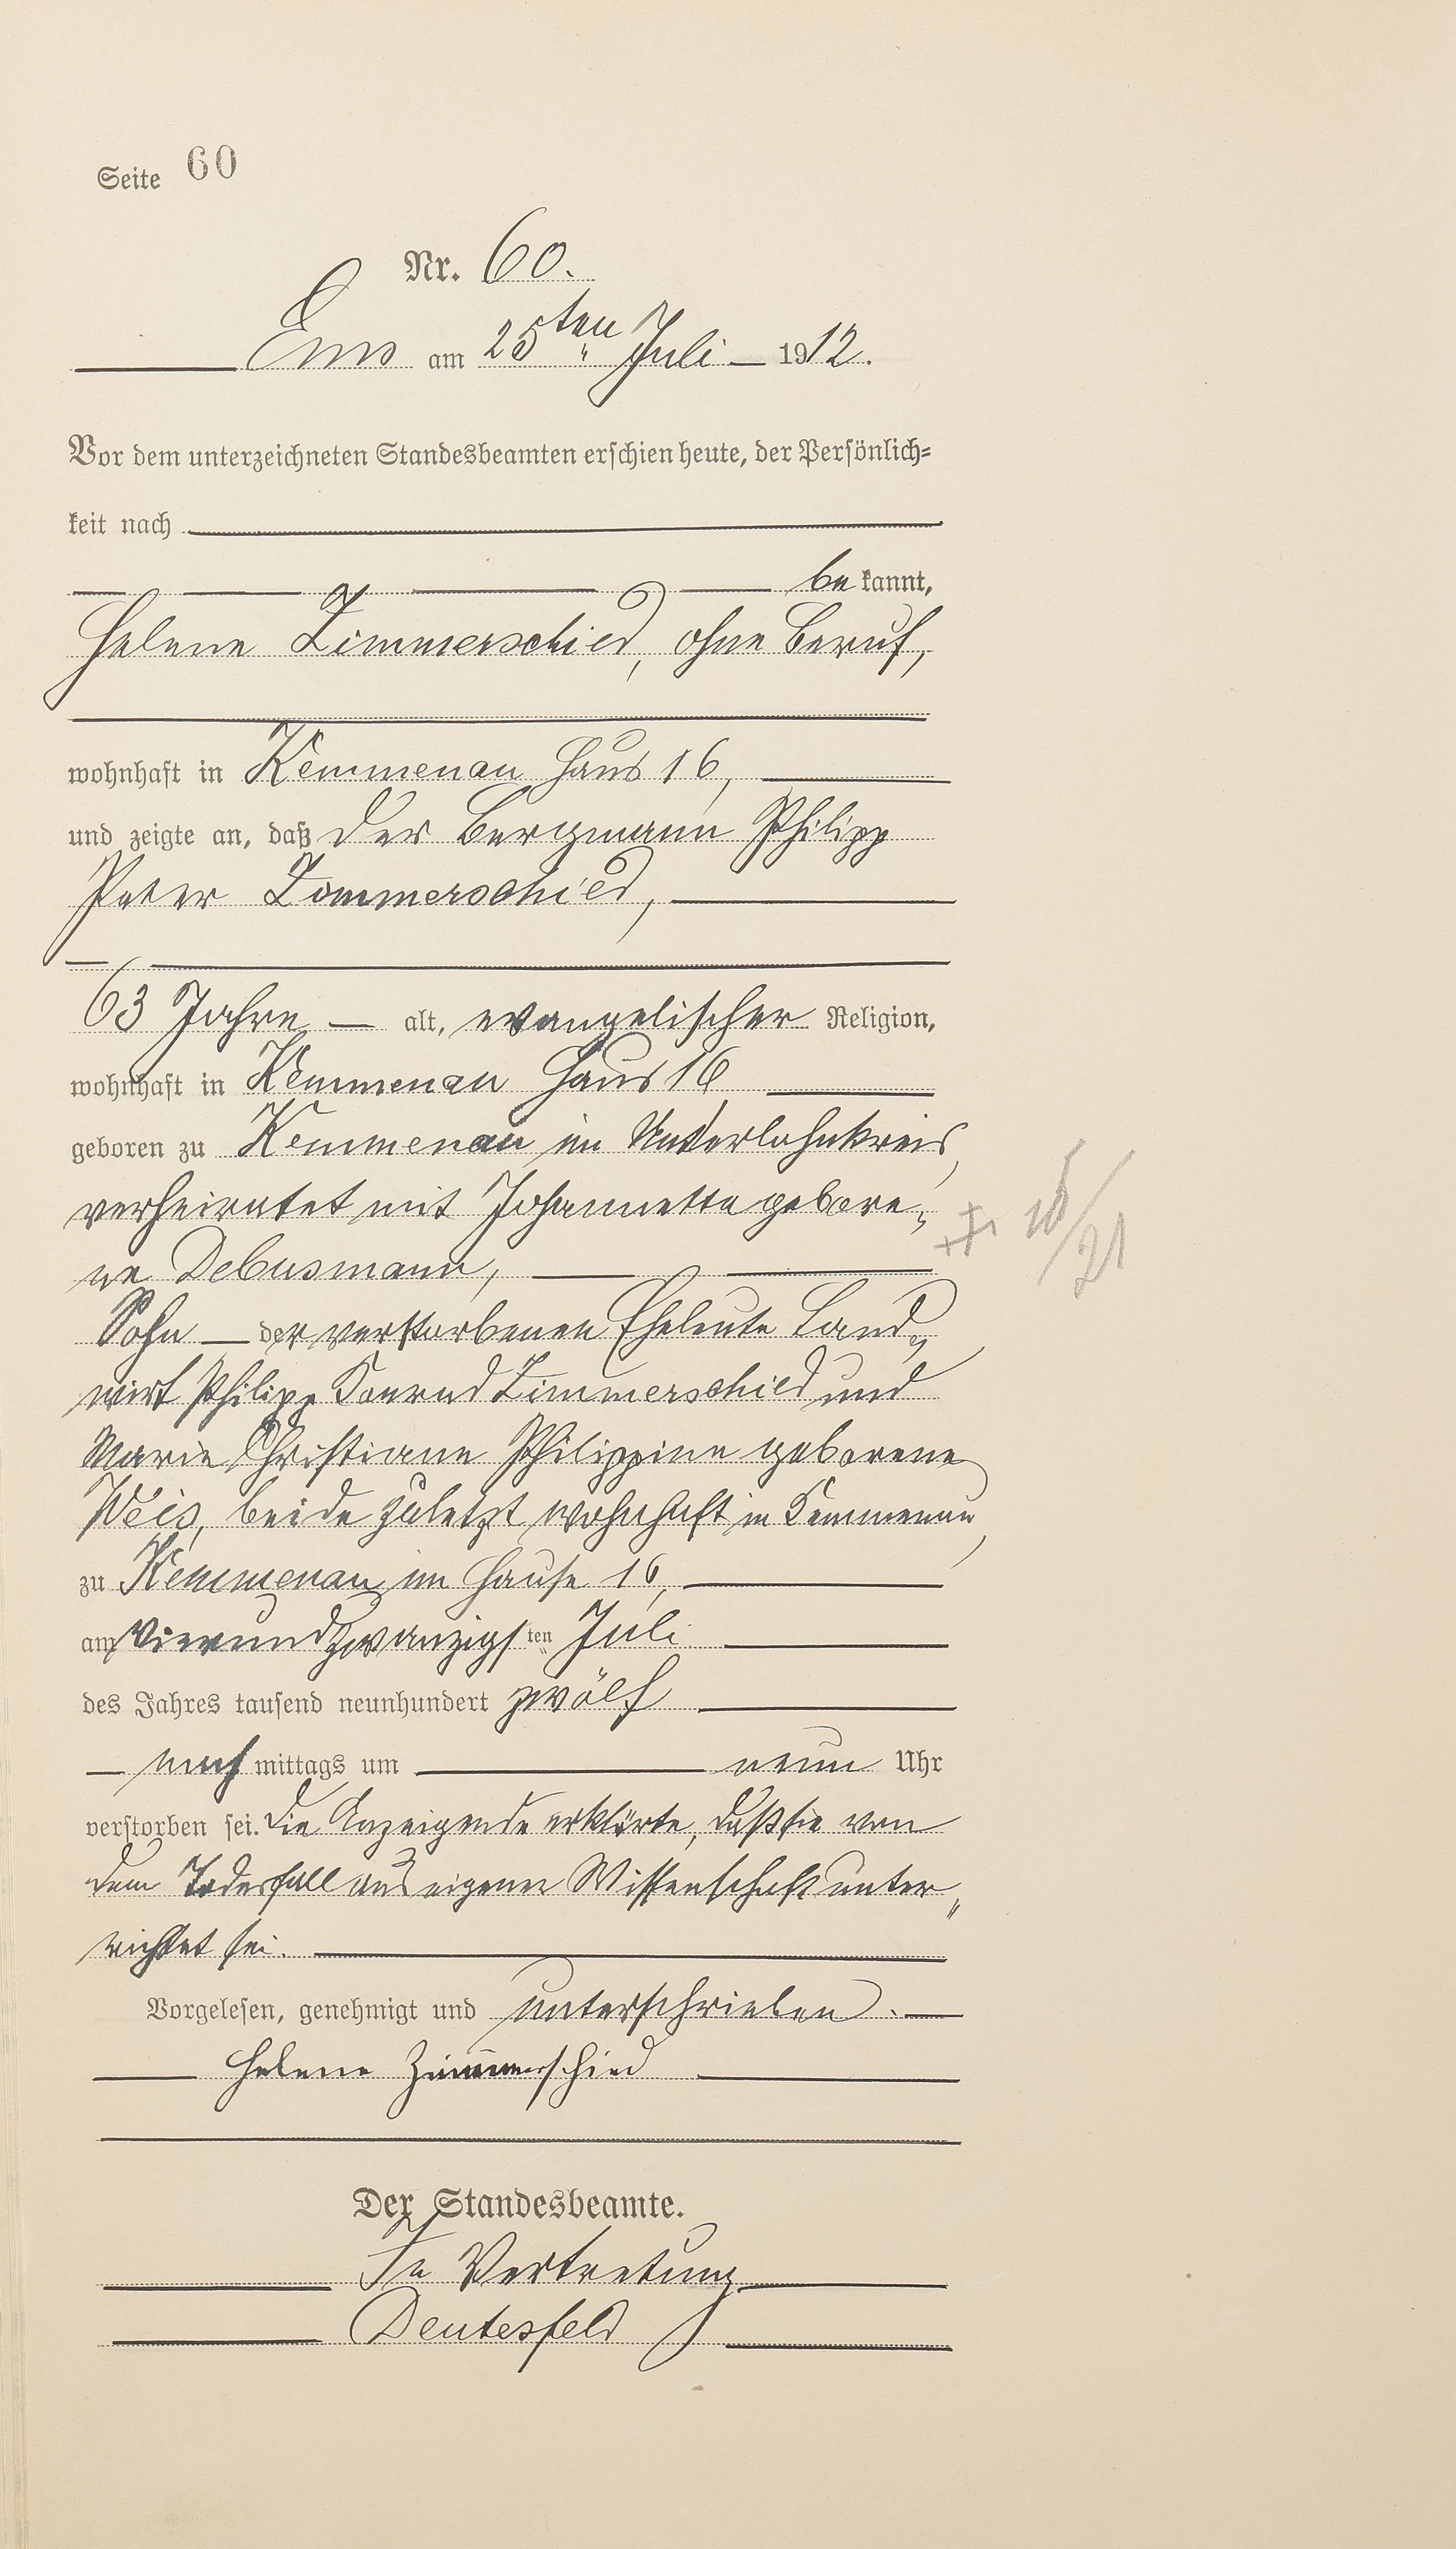 Seite 60
Nr. 60.
Ems am 25ten Juli 1912.
Vor dem unterzeichneten Standesbeamten erschien heute, der Persönlich-
keit nach
be kannt,
Helene Zimmerschied, ohne Beruf,
wohnhaft in Kemmenau Haus 16,
und zeigte an, daß der Bergmann Philipp
Peter Zimmerschied,
63 Jahre alt, evangelischer Religion,
wohnhaft in Kemmenau Haus 16
geboren zu Kemmenau im Unterlahnkreis,
verheiratet mit Johannette gebore-
ne Debusmann,
Sohn der verstorbenen Eheleute Land-
wirt Philipp Konrad Zimmerschied und
Marie Christiane Philippine geborene
Weis, beide zuletzt wohnhaft in Kemmenau,
zu Kemmenau im Hause 16,
am vierundzwanzigsten Juli
des Jahres tausend neunhundert zwölf
nach mittags um neun Uhr
verstorben sei. Die Anzeigende erklärte, daß sie von
dem Todesfall aus eigener Wissenschaft unter-
richtet sei.
Vorgelesen, genehmigt und unterschrieben.
Helene Zimmerschied
Der Standesbeamte.
In Vertretung
Deutesfeld